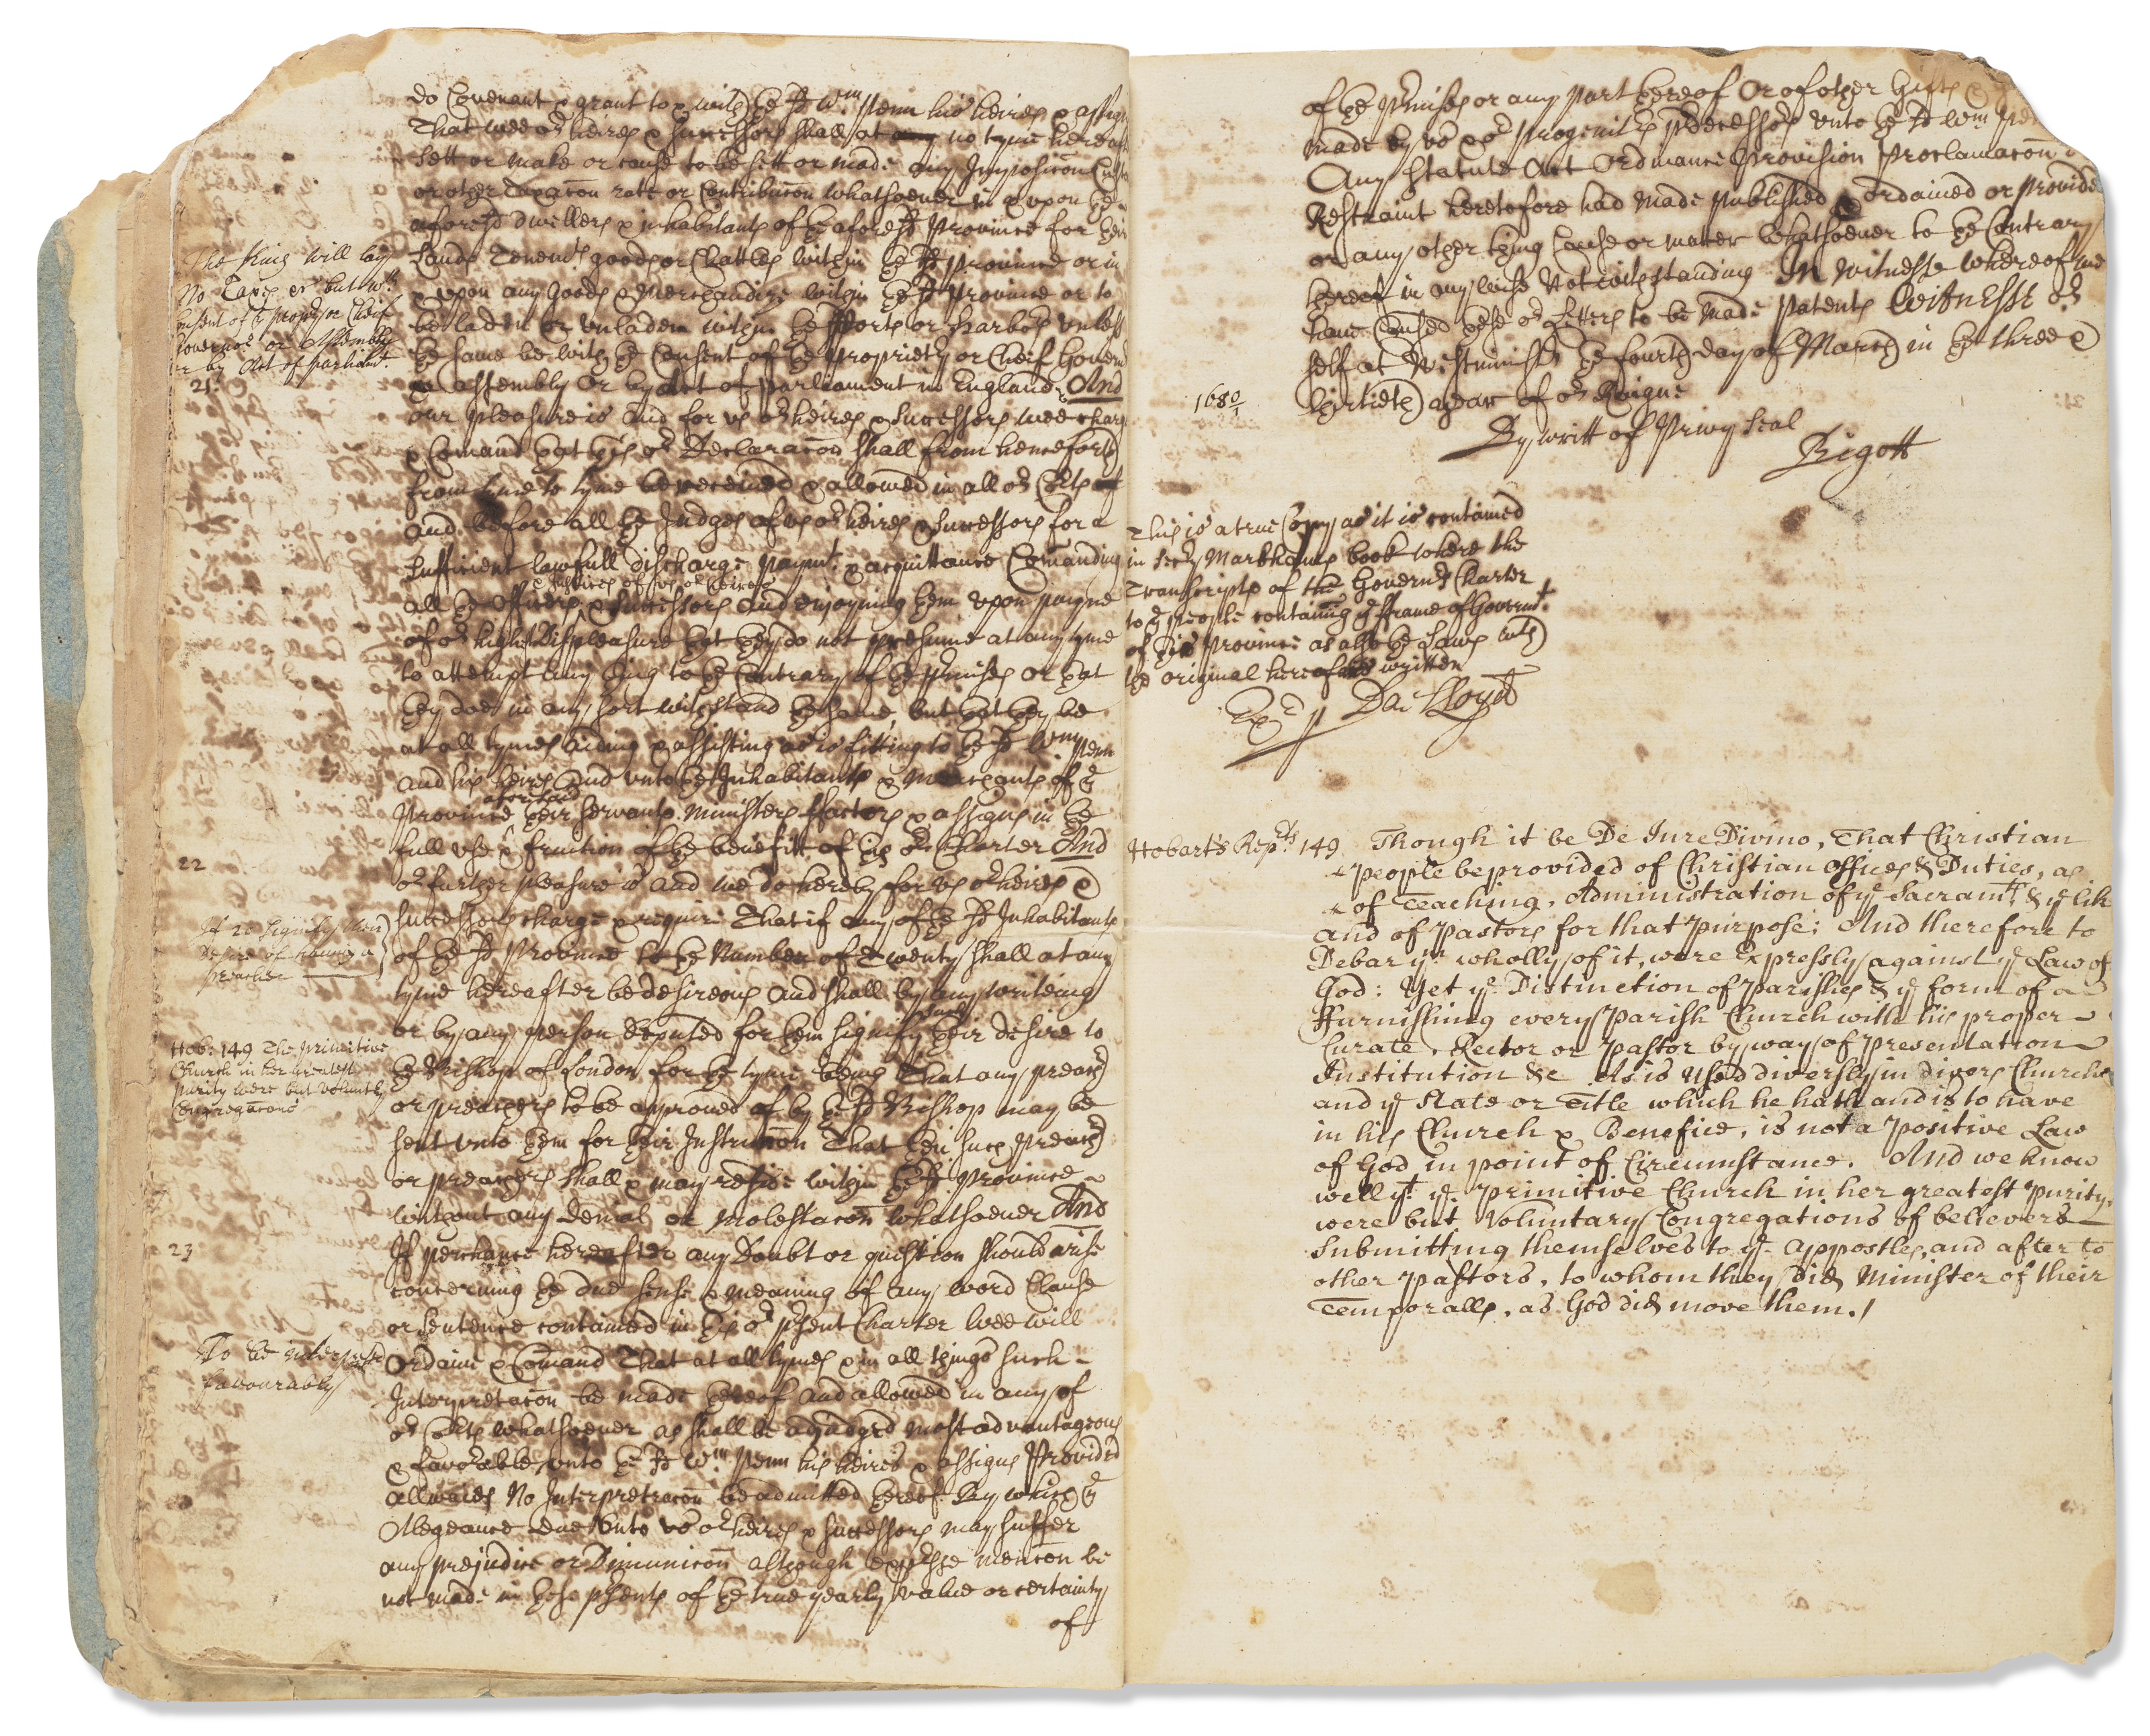 do Covenant & grant to & with ye sd Wm Penn his heires & assig
That wee or heires & Successors shall at no tyme hereaft
Sett or make or cause to be sett or made any Imposicōn Cust
or other Taxacōn rate or Contribucōn whatsoever in & upon ye
aforesd dwellers & inhabitants of ye aforesd Province for their
Lands Tenemts goods or Chattles within ye sd Province or in
& upon any Goods & Merchandize within ye sd Province or to
be laden or unladen within ye Ports or Harbors unless
ye same be with ye Consent of ye Proprietry or Cheif Governr
or assembly Or by Act of Parliament in England. And
our pleasure is And for us or heires & Successors wee charge
& Comand that this or Declaracōn shall from henceforth
from tyme to tyme be received & allowed in all or Corts
and before all ye Judges of us or heires & Successors for a
Sufficient lawfull discharge paymt & acquittance Comanding
& Justices of us or heires
all ye officers & Successors and enjoyning them upon payne
of or high Displeasure that they do not presume at any tyme
to attempt any thing to ye Contrary of ye prmises or that
they doe in any sort withstand ye same, but that they be
at all tymes aiding & assisting as is fitting to ye sd Wm Penn
and his heires And unto ye Inhabitants & Merchants of ye
aforesaid
Province their Servants Ministers ffactors & assigns in ye
full use & fruition of ye benefitt of this or Charter And
or further pleasure is And we do hereby for us or heires &
Successors charge & require That if any of ye sd Inhabitants
of ye sd Province to ye Number of Twenty shall at any
tyme hereafter be desireous and shall by any writeing
such
or by any person deputed for them signify their desire to
ye Bishop of London for ye tyme being That any preacher
or preachers to be approved of by ye sd Bishop may be
sent unto them for their Instrucōn That then such preacher
or preachers shall & may reside within ye sd Province
without any denial or molestacōn whatsoever And
If perchance hereafter any Doubt or question should arise
concerning ye due sense & meaning of any word Clause
or Sentence contained in this or psent Charter Wee will
Ordaine & Comand That at all tymes & in all things such
Interpretacōn be made thereof and allowed in any of
or Corts whatsoever as shall be adjudged most advantageous
& favorable unto ye sd Wm Penn his heires & assigns Provided
allwaies No Interpretacōn be admitted thereof By which ye
Allegeance due unto us or heires & successors may suffer
any prejudice or Diminucōn although expresse mencōn be
not made in these psents of the true yearly value or certainty
of
The King will lay
No Taxes &c but wth
Consent of ye propr or Cheif
Governor or Assembly
or by Act of parliamt.
21.
22
If 20 signify their
desire of having a
preacher
Hob: 149 The primitive
Church in her greatest
purity were but Voluntary
Congregacōns
23
To be interpreted
favourably
of ye prmises or any part thereof Or of other Gifts &
made by us & or Progenitrs predecessors unto ye sd Wm Pen
Any Statute Act Ordinance Provision Proclamacōn or
Restraint heretofore had Made published ordained or provide
or any other thing Cause or matter whatsoever to ye Contrary
thereof in any wise Notwithstanding In Witnesse whereof we
have Caused these or Letters to be made Patents Witnesse or
self at Westminstr ye fourth day of March in ye three &
thirtieth year of or Reigne
1680/1
By writt of Privy Seal
Pigott
This is a true Copy as it is contained
in Secry Markhams book where the
Transcripts of the Governrs Charter
to ye People containing ye fframe of Governmt.
of this Province as also ye Laws wth
the original hereof is written
Exd p Da: Lloyd
Hobart's Repts. 149 Though it be De Jure Divino, That Christian
people be provided of Christian Offices & Duties, as
of Teaching, Administration of ye Sacramts. & ye like
and of Pastors for that Purpose; And therefore to
Debar ym wholly of it, were Expressly against ye Law of
God: Yet ye Distinction of Parishes & ye form of
ffurnishing every Parish Church with his proper
Curate, Rector or Pastor by way of Presentation
Institution &c As is Used diversly in divers Churches
and ye State or Title which he hath and is to have
in his Church & Benefice, is not a Positive Law
of God in point of Circumstance. And we know
well yt ye primitive Church in her greatest Purity
were but Voluntary Congregations of believers
Submitting themselves to ye Appostles, and after to
other Pastors, to whom they did Minister of their
Temporalls, as God did move them./